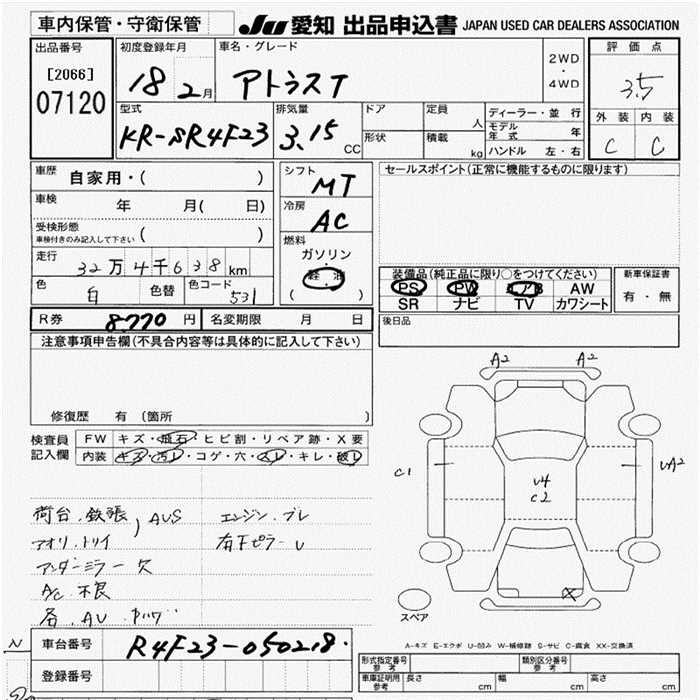 車内保管・守衛保管
JU 愛知 出品申込書 JAPAN USED CAR DEALERS ASSOCIATION
出品番号
[2066]
07120
初度登録年月
18 2月
車名・グレード
アトラスT
2WD
・
4WD
評価点
3.5
外装 内装
C C
型式
KR-SR4F23
排気量
3.15 CC
ドア
形状
定員 人
積載 kg
ディーラー・並行
モデル年式 年
ハンドル 左・右
車歴 自家用・( )
車検 年 月( 日)
受検形態
車検付きのみ記入して下さい ( )
走行 32万4千638km
色 白 色替 色コード 531
シフト
MT
冷房
AC
燃料
ガソリン
・
軽油
( )
セールスポイント(正常に機能するものに限ります)
装備品(純正品に限り○をつけてください)
PS PW エアB AW
SR ナビ TV カワシート
新車保証書
有・無
後日品
R券 8,770円 名変期限 月 日
注意事項申告欄(不具合内容等は具体的に記入して下さい)
修復歴 有 (箇所 )
検査員
記入欄
FW キズ・飛石・ヒビ割・リペア跡・X要
内装 キズ・汚レ・コゲ・穴・スレ・キレ・破レ
荷台.鉄張, AUS
アオリ.トリイ
アンダーミラー欠
A/C 不良
各.AU.
エンジン.ブレ
右下ピラーU
A2 A2
C1
U4
C2
UA2
X
スペア
A-キズ E-エクボ U-凹み W-補修跡 S-サビ C-腐食 XX-交換済
N
車台番号 R4F23-050218.
登録番号
形式指定番号
参考
類別区分番号
参考
車庫証明用
参考
長さ cm 幅 cm 高さ cm